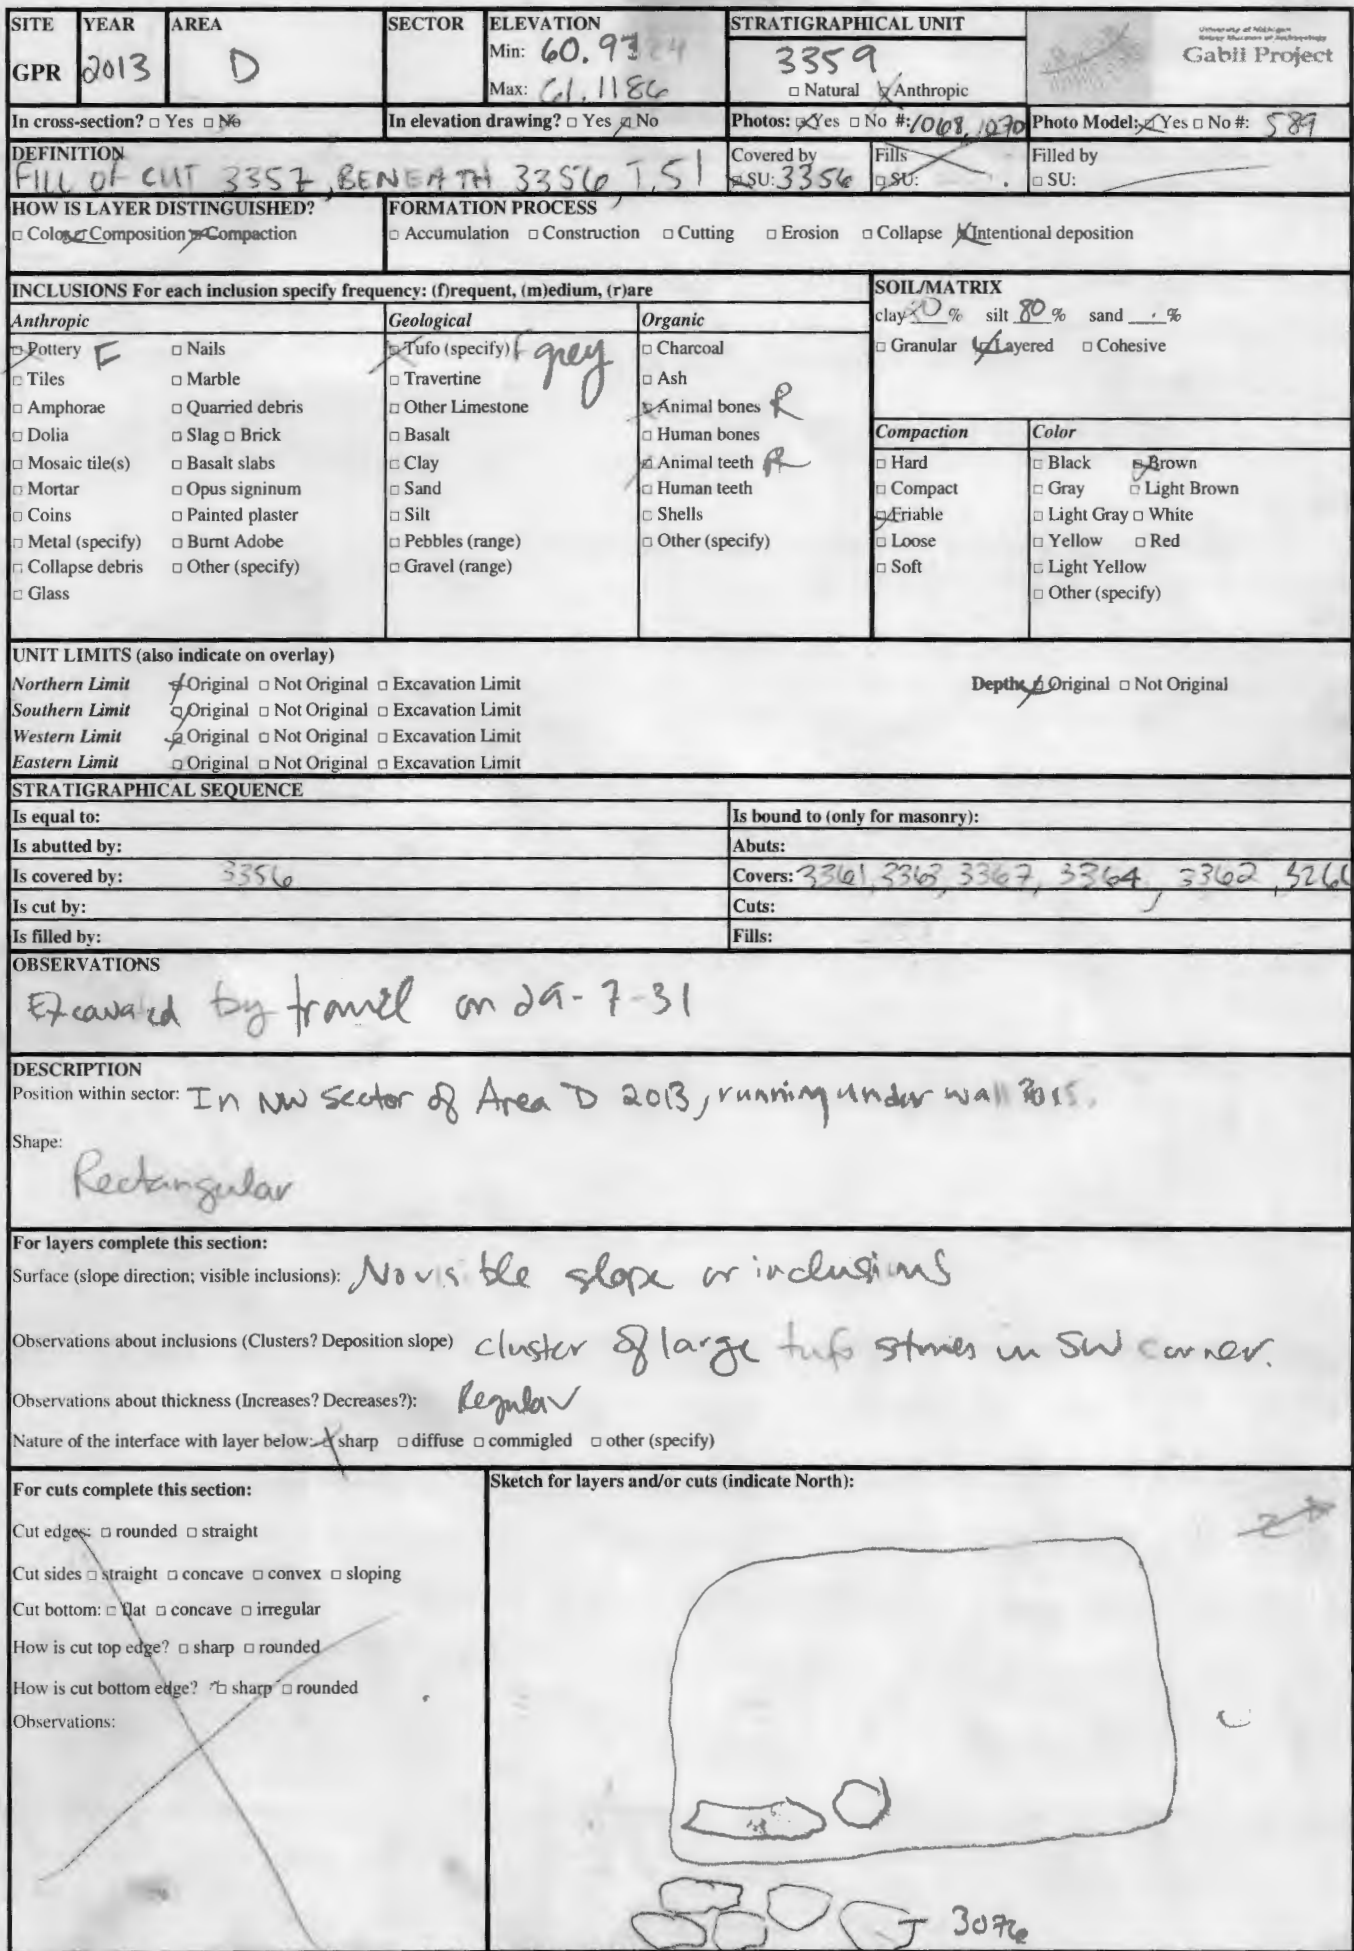 SITE YEAR AREA SECTOR ELEVATION STRATIGRAPHICAL UNIT
GPR 2013 D Min: 60.93 3359
Max: 61.1186 □ Natural □ Anthropic
University of Michigan
Kelsey Museum of Archaeology
Gabii Project
In cross-section? □ Yes □ No In elevation drawing? □ Yes □ No Photos: □ Yes □ No #: 1068, 1070 Photo Model: □ Yes □ No #: 589
DEFINITION
FILL OF CUT 3357, BENEATH 3356 T.51
Covered by
□ SU: 3356
Fills
□ SU:
Filled by
□ SU:
HOW IS LAYER DISTINGUISHED?
□ Color □ Composition □ Compaction
FORMATION PROCESS
□ Accumulation □ Construction □ Cutting □ Erosion □ Collapse □ Intentional deposition
INCLUSIONS For each inclusion specify frequency: (f)requent, (m)edium, (r)are
Anthropic
□ Pottery F □ Nails
□ Tiles □ Marble
□ Amphorae □ Quarried debris
□ Dolia □ Slag □ Brick
□ Mosaic tile(s) □ Basalt slabs
□ Mortar □ Opus signinum
□ Coins □ Painted plaster
□ Metal (specify) □ Burnt Adobe
□ Collapse debris □ Other (specify)
□ Glass
Geological
□ Tufo (specify) f grey
□ Travertine
□ Other Limestone
□ Basalt
□ Clay
□ Sand
□ Silt
□ Pebbles (range)
□ Gravel (range)
Organic
□ Charcoal
□ Ash
□ Animal bones R
□ Human bones
□ Animal teeth R
□ Human teeth
□ Shells
□ Other (specify)
SOIL/MATRIX
clay 20 % silt 80 % sand %
□ Granular □ Layered □ Cohesive
Compaction
□ Hard
□ Compact
□ Friable
□ Loose
□ Soft
Color
□ Black □ Brown
□ Gray □ Light Brown
□ Light Gray □ White
□ Yellow □ Red
□ Light Yellow
□ Other (specify)
UNIT LIMITS (also indicate on overlay)
Northern Limit □ Original □ Not Original □ Excavation Limit Depth: □ Original □ Not Original
Southern Limit □ Original □ Not Original □ Excavation Limit
Western Limit □ Original □ Not Original □ Excavation Limit
Eastern Limit □ Original □ Not Original □ Excavation Limit
STRATIGRAPHICAL SEQUENCE
Is equal to: Is bound to (only for masonry):
Is abutted by: Abuts:
Is covered by: 3356 Covers: 3361, 3363, 3367, 3364, 3362,
Is cut by: Cuts:
Is filled by: Fills:
OBSERVATIONS
Excavated by trowel on 29-7-31
DESCRIPTION
Position within sector: In NW sector of Area D 2013, running under wall
Shape:
Rectangular
For layers complete this section:
Surface (slope direction; visible inclusions): No visible slope or inclusions
Observations about inclusions (Clusters? Deposition slope) cluster of large tufo stones in SW corner.
Observations about thickness (Increases? Decreases?): Regular
Nature of the interface with layer below: □ sharp □ diffuse □ commigled □ other (specify)
For cuts complete this section:
Cut edges: □ rounded □ straight
Cut sides □ straight □ concave □ convex □ sloping
Cut bottom: □ flat □ concave □ irregular
How is cut top edge? □ sharp □ rounded
How is cut bottom edge? □ sharp □ rounded
Observations:
Sketch for layers and/or cuts (indicate North):
3076